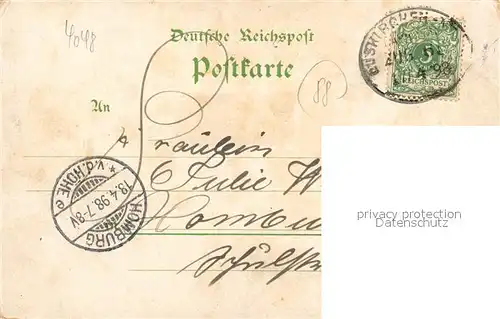 4048
Deutsche Reichspost
Postkarte
88
An
Fräulein
Julie W
Hombu
Schulstr
EUSKIRCHEN
5
REICHSPOST
HOMBURG
v.d. HÖHE
18.4.98.7-8V
e
privacy protection
Datenschutz